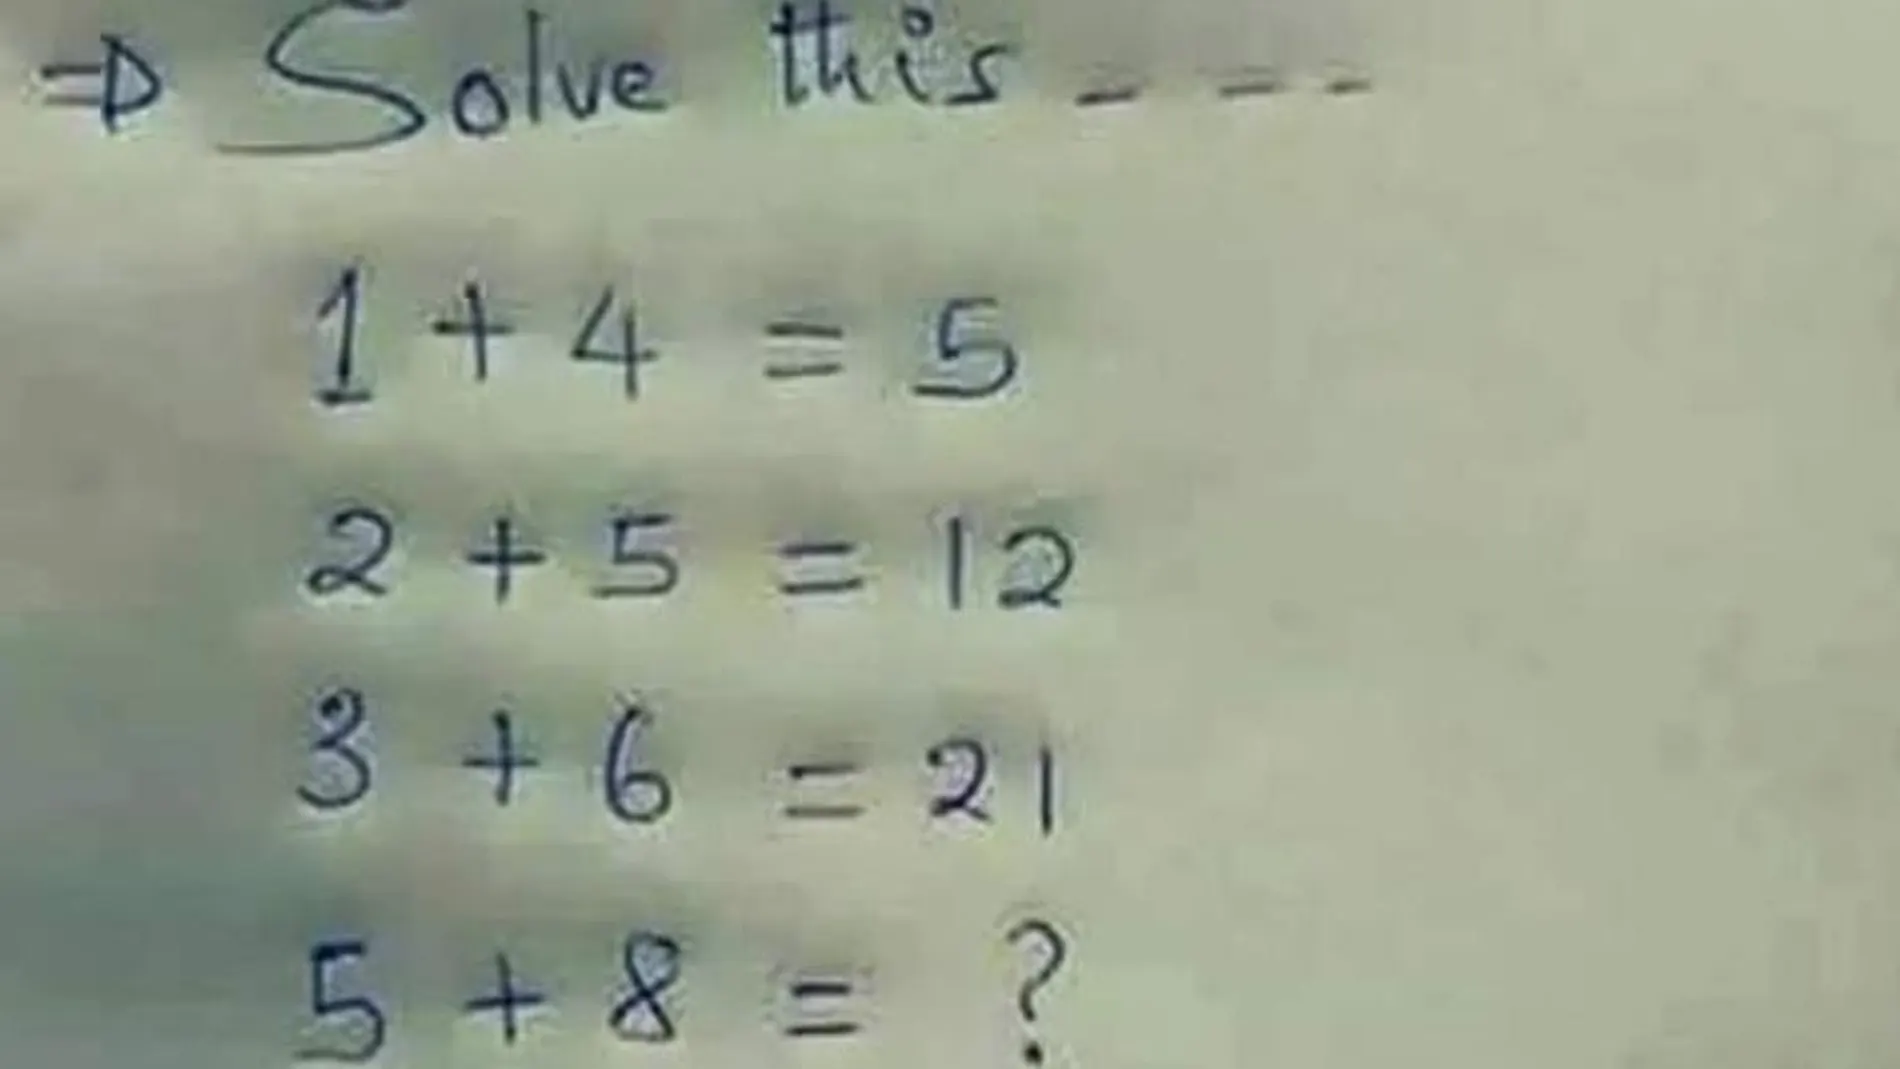 ⇒ Solve this ---
1 + 4 = 5
2 + 5 = 12
3 + 6 = 21
5 + 8 = ?